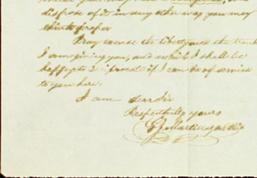 dispose of it in any other way you may
think proper
Pray excuse the liberty and the trouble
I am giving you, and which I shall be
happy to repay if I can be of service
to you here.
I am dear Sir
Respectfully yours